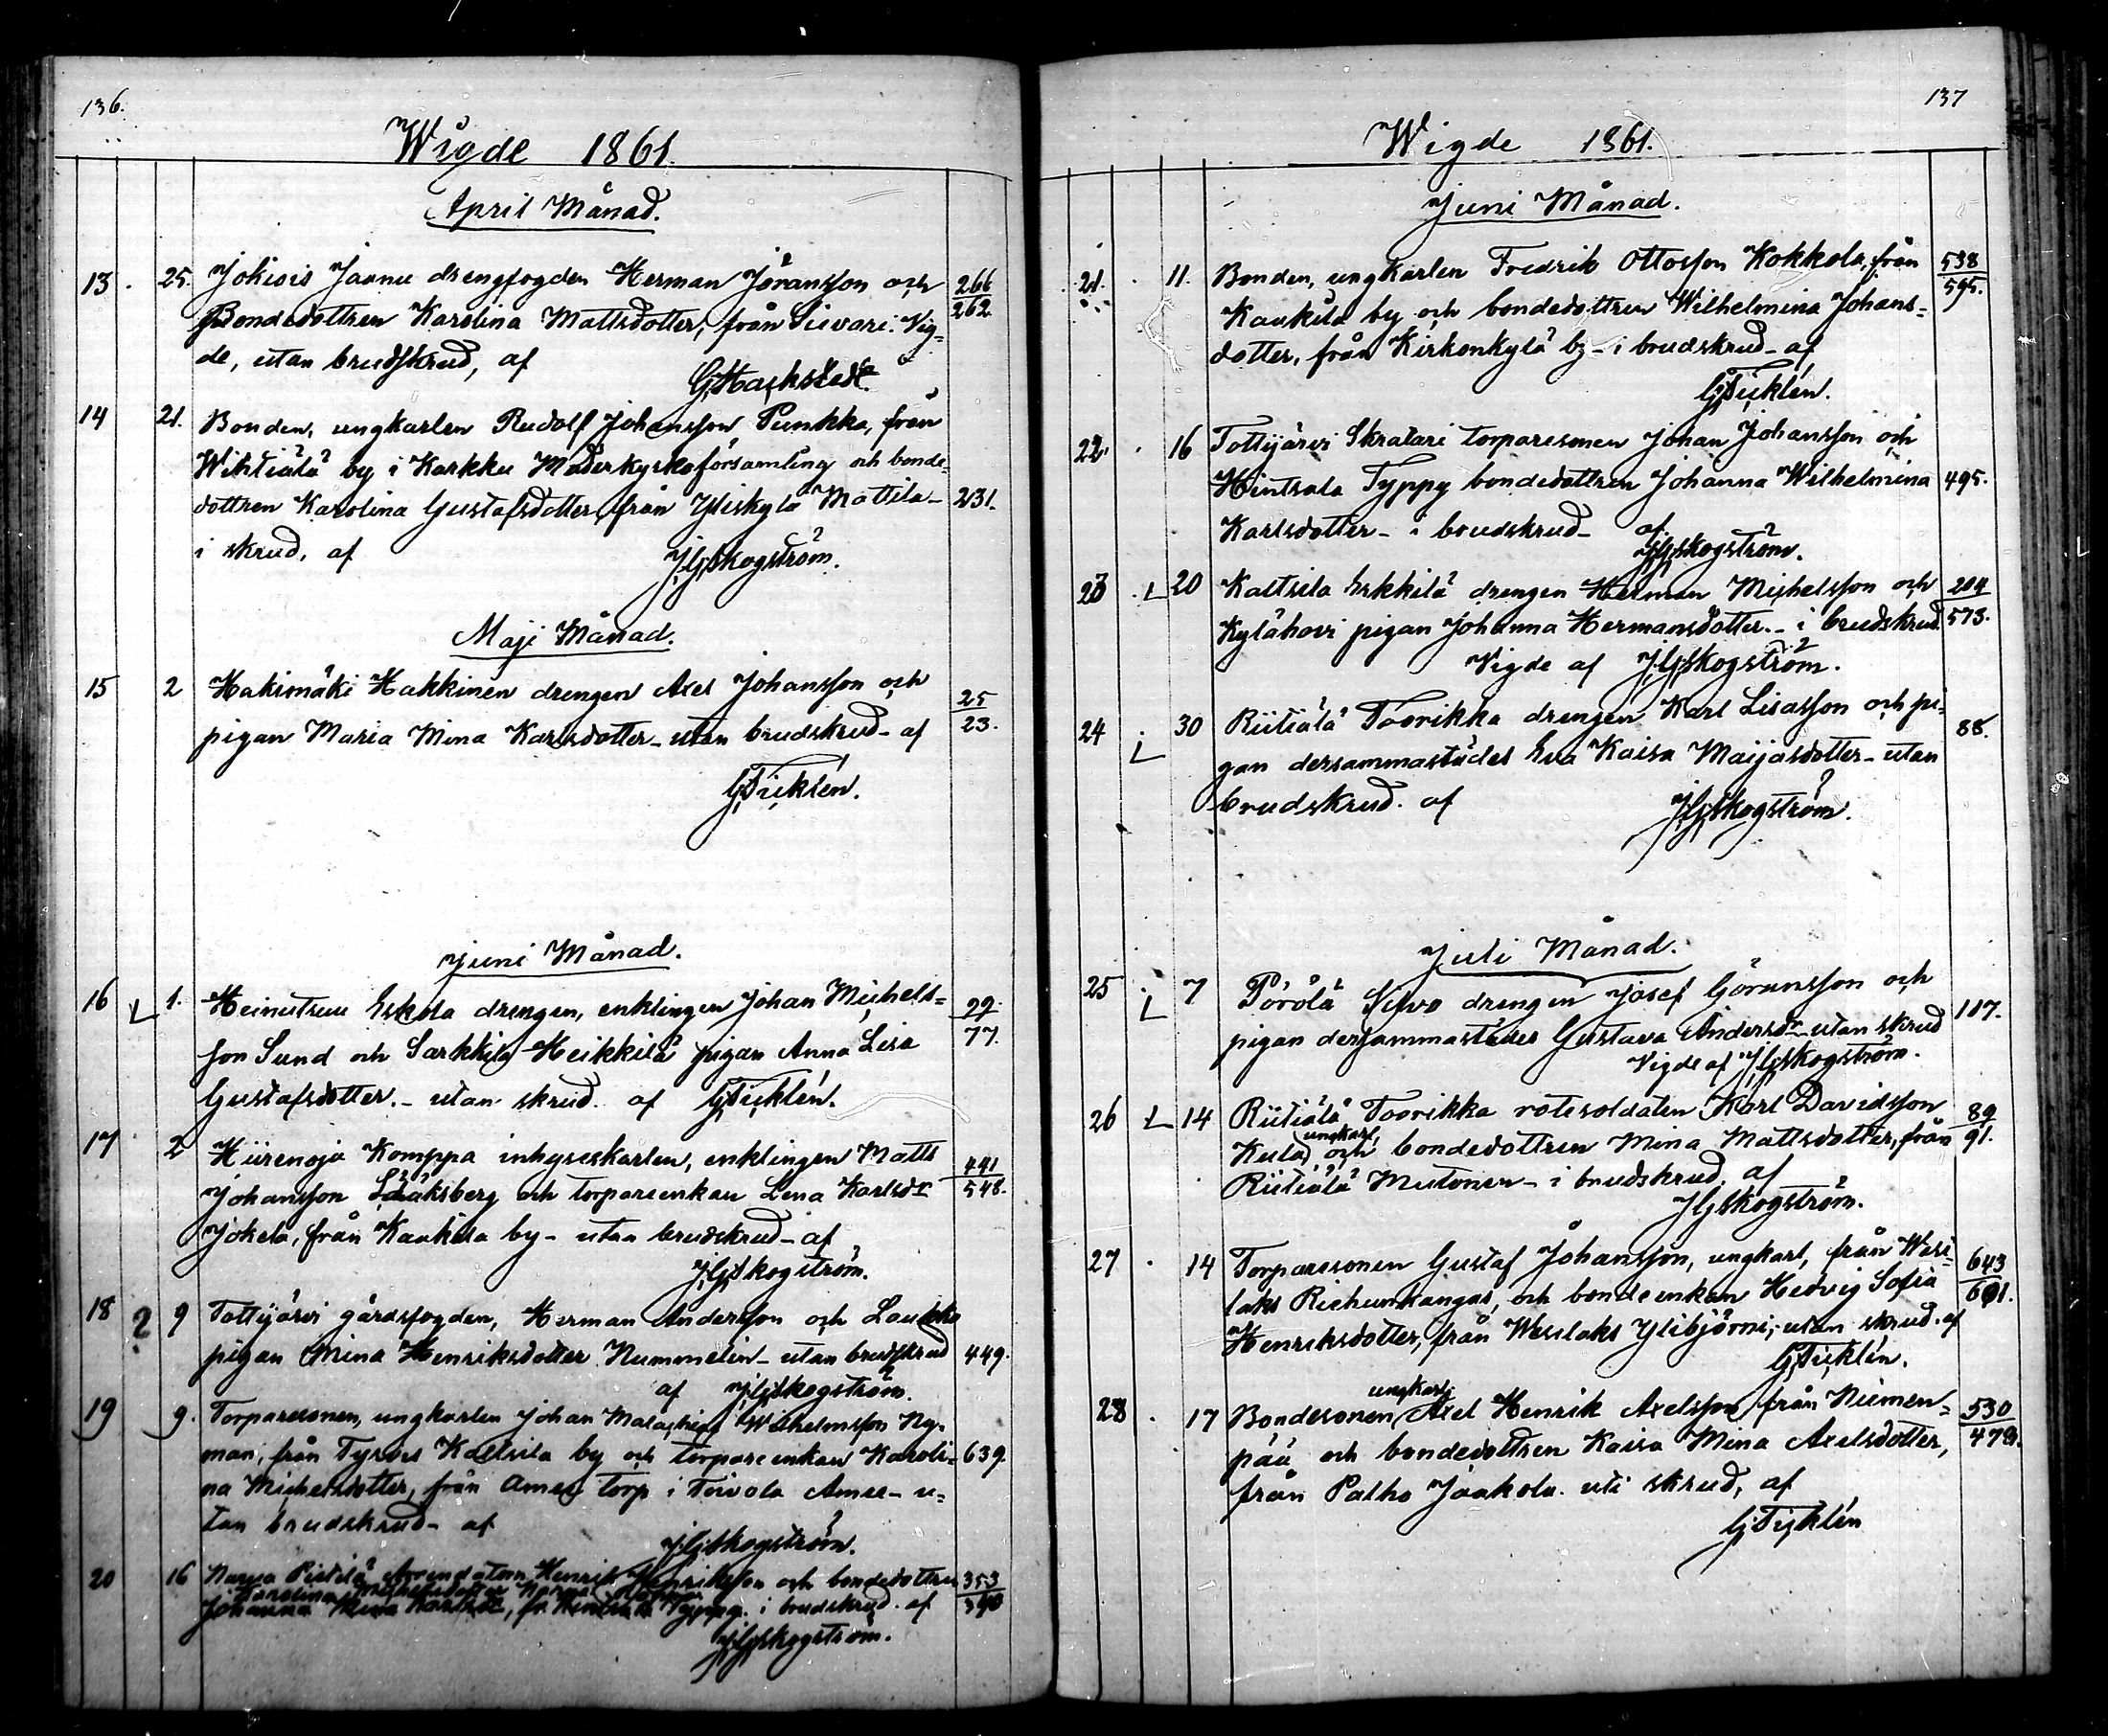 136.
Wigde 1861.
April Månad.
13 . 25. Jokisis Jaanu drengfogden Herman Jöransson och 266
Bondedottren Karolina Mattsdotter, från Sievari. Vig- 262
de, utan brudskrud, af
14 21. Bonden, ungkarlen Rudolf Johansson Punkka, från
Wihtiälä by i Karkku Moderkyrkoförsamling och bonde-
dottren Karolina Gustafsdotter, från Yliskylä Mattila - 231.
i skrud, af JGSkogström.
Maji Månad.
15 2 Hakimäki Hakkinen drengen Axel Johansson och 25
pigan Maria Mina Karlsdotter - utan brudskrud - af 23.
GTicklén.
Juni Månad.
16 L 1. Heinutsuu Eskola drengen, enklingen Johan Michels= 29.
son Sund och Sarkkila Heikkilä pigan Anna Lisa 77.
Gustafsdotter. - utan skrud. af GTicklén.
17 2 Hiirenoja Komppa inhyseskarlen, enklingen Matts 441
Johansson och torpareenkan Lena Karlsdr 548.
Jokela, från Kaukila by - utan brudskrud - af
JGSkogström.
18 ? 9 Tottijärvi gårdsfogden, Herman Andersson och Laukko
pigan Mina Henriksdotter Nummelin - utan brudskrud 449.
af JGSkogström.
19 9. Torparesonen, ungkarlen Johan Malachias Wilhelmsson Ny-
man, från Tyrvis Kaltsila by och torpareenkan Karoli= 639.
na Michelsdotter, från torp i Toivola - u=
tan brudskrud - af
JGSkogström.
20 16 Narva Pietilä Arrendatorn Henrik Henriksson och bondedottren 353
Karolina Michelsdotter Narva
Johanna Mina, fr. Hintsala Typpy. i brudskrud. af
JGSkogström.
137
Wigde 1861.
Juni Månad.
21. . 11. Bonden, ungkarlen Fredrik Ottosson Kokkola, från 538
Kaukila by och bondedottren Wilhelmina Johans= 595.
dotter, från Kirkonkylä by - i brudskrud - af
GTicklén.
22. . 16 Tottijärvi Skratari torparesonen Johan Johansson och
Hintsala Typpy bondedottren Johanna Wilhelmina 495.
Karlsdotter - i brudskrud - af
JGSkogström.
23 . L 20 Kaltsila Erkkilä drengen Herman Michelsson och 204
Kylähovi pigan Johanna Hermansdotter. - i brudskrud. 573.
Vigde af JGSkogström.
24 . L 30 Riitiälä Toorikka drengen Karl Lisasson och pi- 88.
gan dersammastädes Eva Kaisa Maijasdotter - utan
brudskrud. af JGSkogström.
Juli Månad.
25 . L 7 Pörölä Silvo drengen Josef Göransson och
pigan dersammastädes Gustava Andersdr - utan skrud 107.
Vigde af JGSkogström.
26 L 14 Riitiälä Toorikka rotesoldaten Karl Davidsson 89
ungkarl,
Kula, och bondedottren Mina Mattsdotter, från 91.
Riitiälä Mutonen - i brudskrud, af
JGSkogström.
27 . 14 Torparesonen Gustaf Johansson, ungkarl, från Wesi- 643
laks Riehunkangas, och bondeenkan Hedvig Sofia 601.
Henriksdotter, från Wesilaks Ylibjörni, - utan skrud. af
GTicklén.
ungkarl,
28 . 17 Bondesonen Axel Henrik Axelsson från Niemen= 530
pää och bondedottren Kaisa Mina Axelsdotter, 479.
från Palho Jaakola. uti skrud, af
GTicklén